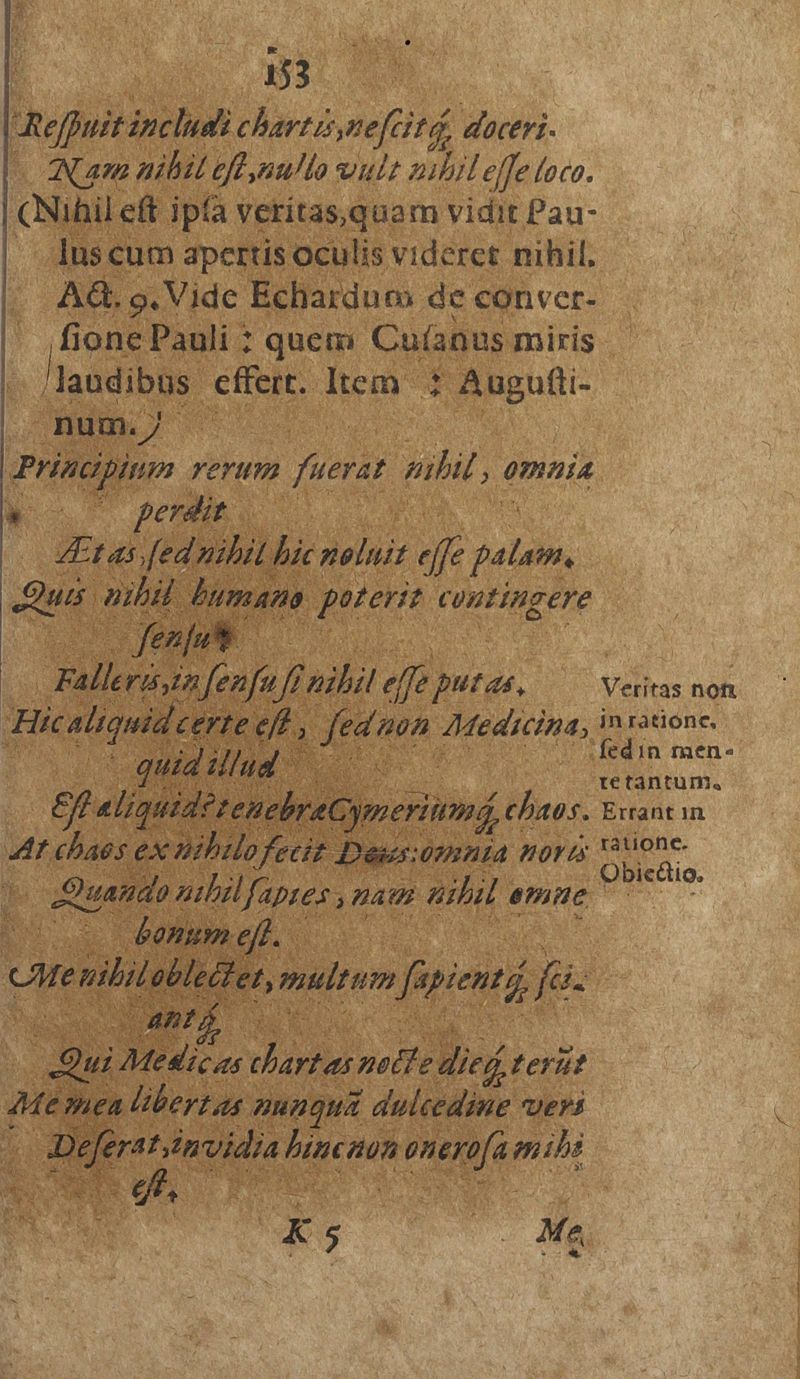 153
Reſpuit includi chartis, neſcitq́; doceri.
Nam nihil eſt, nullo vult nihil eſſe loco.
(Nihil eſt ipſa veritas, quam vidit Pau-
lus cum apertis oculis videret nihil.
Act. 9. Vide Echardum de conver-
ſione Pauli : quem Cuſanus miris
laudibus effert. Item : Auguſti-
num.)
Principium rerum fuerat nihil, omnia
perdit
Ætas, ſed nihil hic noluit eſſe palam.
Quis nihil humano poterit contingere
ſenſu?
Falleris, in ſenſu ſi nihil eſſe putas.
Hic aliquid certe eſt, ſed non Medicina,
quid illud
Eſt aliquid? tenebræ Cymeriumq́; chaos.
At chaos ex nihilo fecit Deus: omnia noris
Quando nihil ſapies, nam nihil omne
bonum eſt.
Me nihil oblectet, multum ſapientq́; ſci-
antq́;
Qui Medicas chartas nocte dieq́; terũt
Me mea libertas nunquã dulcedine veri
Deferat, invidia hinc non oneroſa mihi
eſt.
K 5 Me
Veritas non
in ratione,
ſed in men-
te tantum.
Errant in
ratione.
Obiectio.